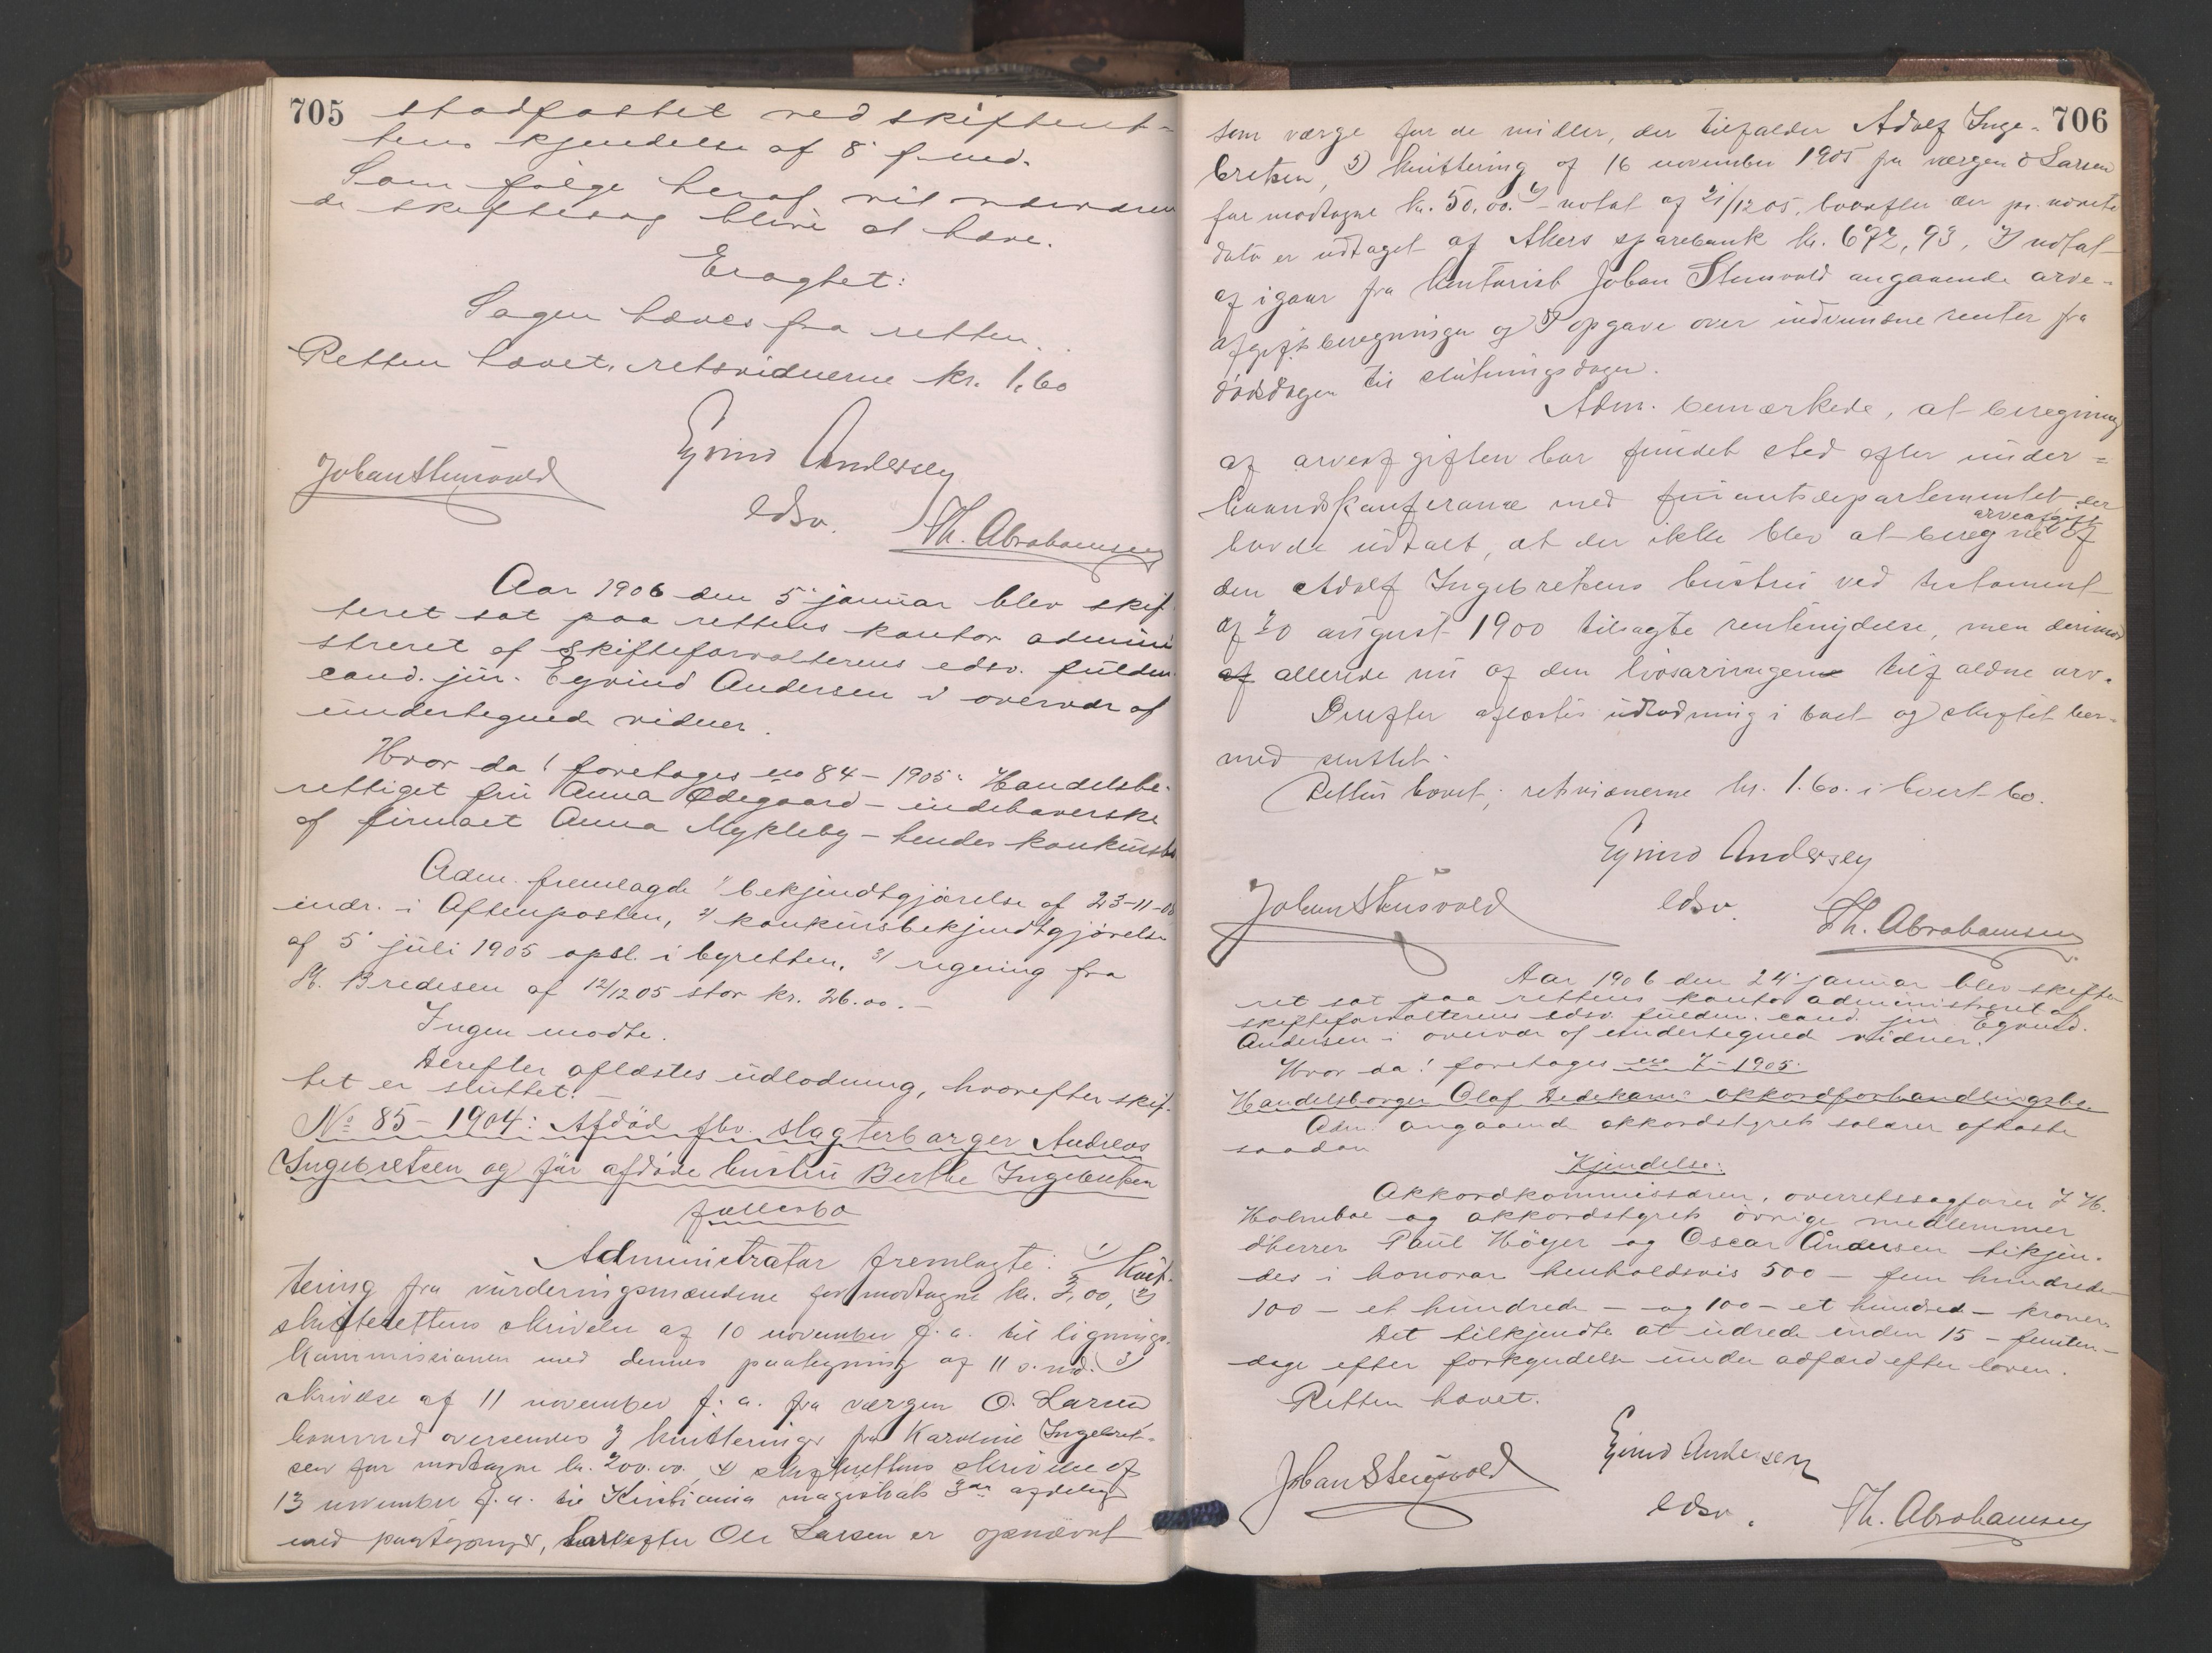 705
stadfæstet ved skifteret-
tens kjendelse af 8 f. md.
Som følge heraf vil nærværen
de skiftesag blive at hæve.
Eragtet:
Sagen hæves fra retten.
Retten hævet, retsvidnerne kr. 1,60
Eyvind Andersen
edsv.
Johan Stensvold
Th. Abrahamsen
Aar 1906 den 5 januar blev skif
teret sat paa rettens kontor admini
streret af skifteforvalterens edsv. fuldm.
cand. jur. Eyvind Andersen i overvær af
undertegnede vidner.
Hvor da! foretoges no 84 - 1905: Handelsbe-
rettiget fru Anna Ødegaard - indehaverske
af firmaet Anna Mykleby - hendes konkursbo
Adm. fremlagde 1/ bekjendtgjørelse af 23-11-05
indr. i Aftenposten, 2/ konkursbekjendtgjørelse
af 5 juli 1905 opsl. i byretten, 3/ regning fra
H. Bredesen af 12/12 05 stor kr. 26.00. -
Ingen mødte.
Derefter aflæstes udlodning, hvorefter skif-
tet er sluttet. -
No 85 - 1904: Afdød fhv. slagterborger Andreas
Ingebretsen og før afdøde hustru Berthe Ingebretsen
fællesbo
Administrator fremlagte: 1) Kvit-
tering fra vurderingsmændene for modtagne kr. 3,00, 2)
skifterettens skrivelse af 10 november f. a. til lignings-
kommissionen med dennes paategning af 11 s. md. 3)
skrivelse af 11 november f. a. fra værgen O. Larsen
hvorved oversendes 3 kvitteringer fra Karoline Ingebret-
sen for modtagne kr. 200.00, 4) skifterettens skrivelse af
13 november f. a. til Kristiania magistrats 3die afdeling
med paategninger, hvorefter Ole Larsen er opnævnt
706
som værge for de midler, der tilfalder Adolf Inge-
bretsen, 5) kvittering af 16 november 1905 fra værgen O Larsen
for modtagne kr. 50,00. notat af 21/12 05, hvorefter der pr. nævnte
dato er udtaget af Akers sparebank kr. 672,93, 7) notat
af igaar fra kontorist Johan Stensvold angaaende arve-
afgiftsberegningen og 8) opgave over indvundne renter fra
dødsdagen til slutningsdagen.
Adm. bemærkede, at beregning
af arveafgiften har fundet sted efter under-
haandskonferance med finantsdepartementet der
havde udtalt, at der ikke blev at beregne arveafgift af
den Adolf Ingebretsens hustru ved testament
af 20 august 1900 tilsagte rentenydelse, men derimod
af allerede nu af den livsarvingen tilfaldne arv.
Derefter aflæstes udlodning i boet og skiftet her-
med sluttet.
Retten hævet, retsvidnerne kr. 1.60. i hvert bo.
Eyvind Andersen
edsv.
Johan Stensvold
Th. Abrahamsen
Aar 1906 den 24 januar blev skifte
ret sat paa rettens kontor administreret af
skifteforvalterens edsv. fuldm. cand. jur Eyvind
Andersen i overvær af undertegnede vidner.
Hvor da! foretoges no 7 - 1905:
Handelsborger Olaf Dedekams akkordforhandlingsbo
Adm. angaaende akkordstyrets salærer afsagte
saadan
Kjendelse:
Akkordkommissæren, overretssagfører J H.
Holmboe og akkordstyrets øvrige medlemmer
dherrer Paul Höyer og Oscar Andersen tilkjen-
des i honorar henholdsvis 500 - fem hundrede
100 - et hundrede - og 100 - et hundrede - kroner.
Det tilkjendte at udrede inden 15 - femten -
dage efter forkyndelse under adfærd efter loven.
Retten hævet.
Eyvind Andersen
edsv.
Johan Stensvold
Th. Abrahamsen